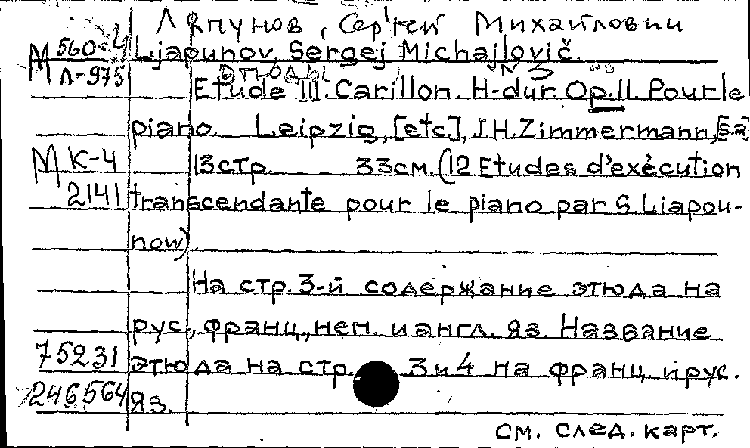 Ляпунов, Сергей Михайлович
М 560-4 Ljapunov, Sergej Michajlovič.
Л-975 Этюды № 3
Etude III. Carillon. H-dur. Op. 11. Pour le
piano. Leipzig, [etc], J.H. Zimmermann, [s.a]
М К-4 13 стр. 33 см. (12 Etudes d'exècution
2141 transcendante pour le piano par S. Liapou-
now)
На стр. 3-й содержание этюда на
рус., франц., нем. и англ. яз. Название
75231 этюда на стр. 3 и 4 на франц. и рус.
246564 яз.
См. след. карт.